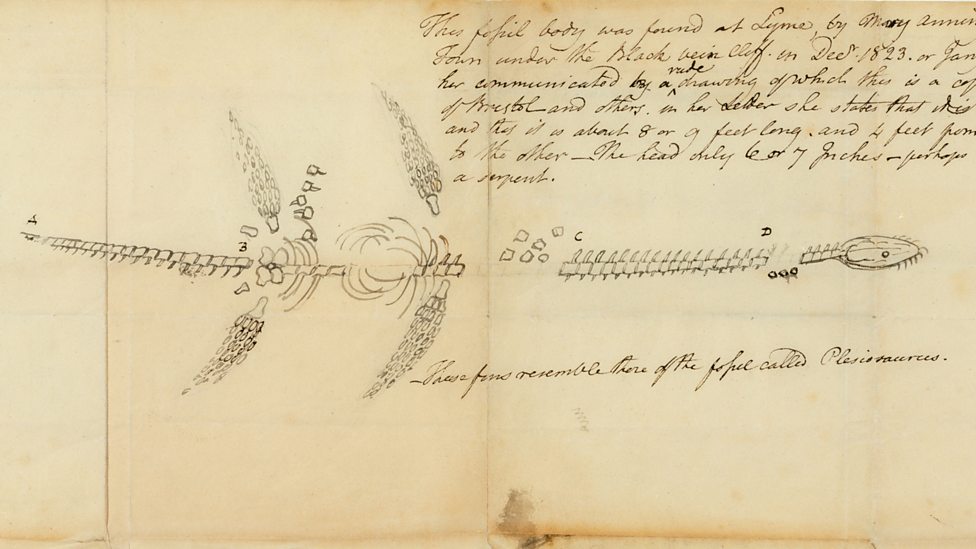 This fossil body was found at Lyme, by Mary Annin
Town under the Black vein Cliff. in Decr. 1823. or Jan
her communicated by a rude drawing of which this is a cop
of Bristol and others. in her Letter she states that it is
and this it is about 8 or 9 feet long. and 4 feet from
to the other — The head only 6 or 7 Inches — perhaps
a serpent.
A
B
C
D
These fins resemble those of the fossil called Plesiosaurus.